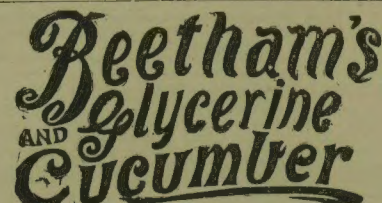 Beetham's
Glycerine
AND
Cucumber